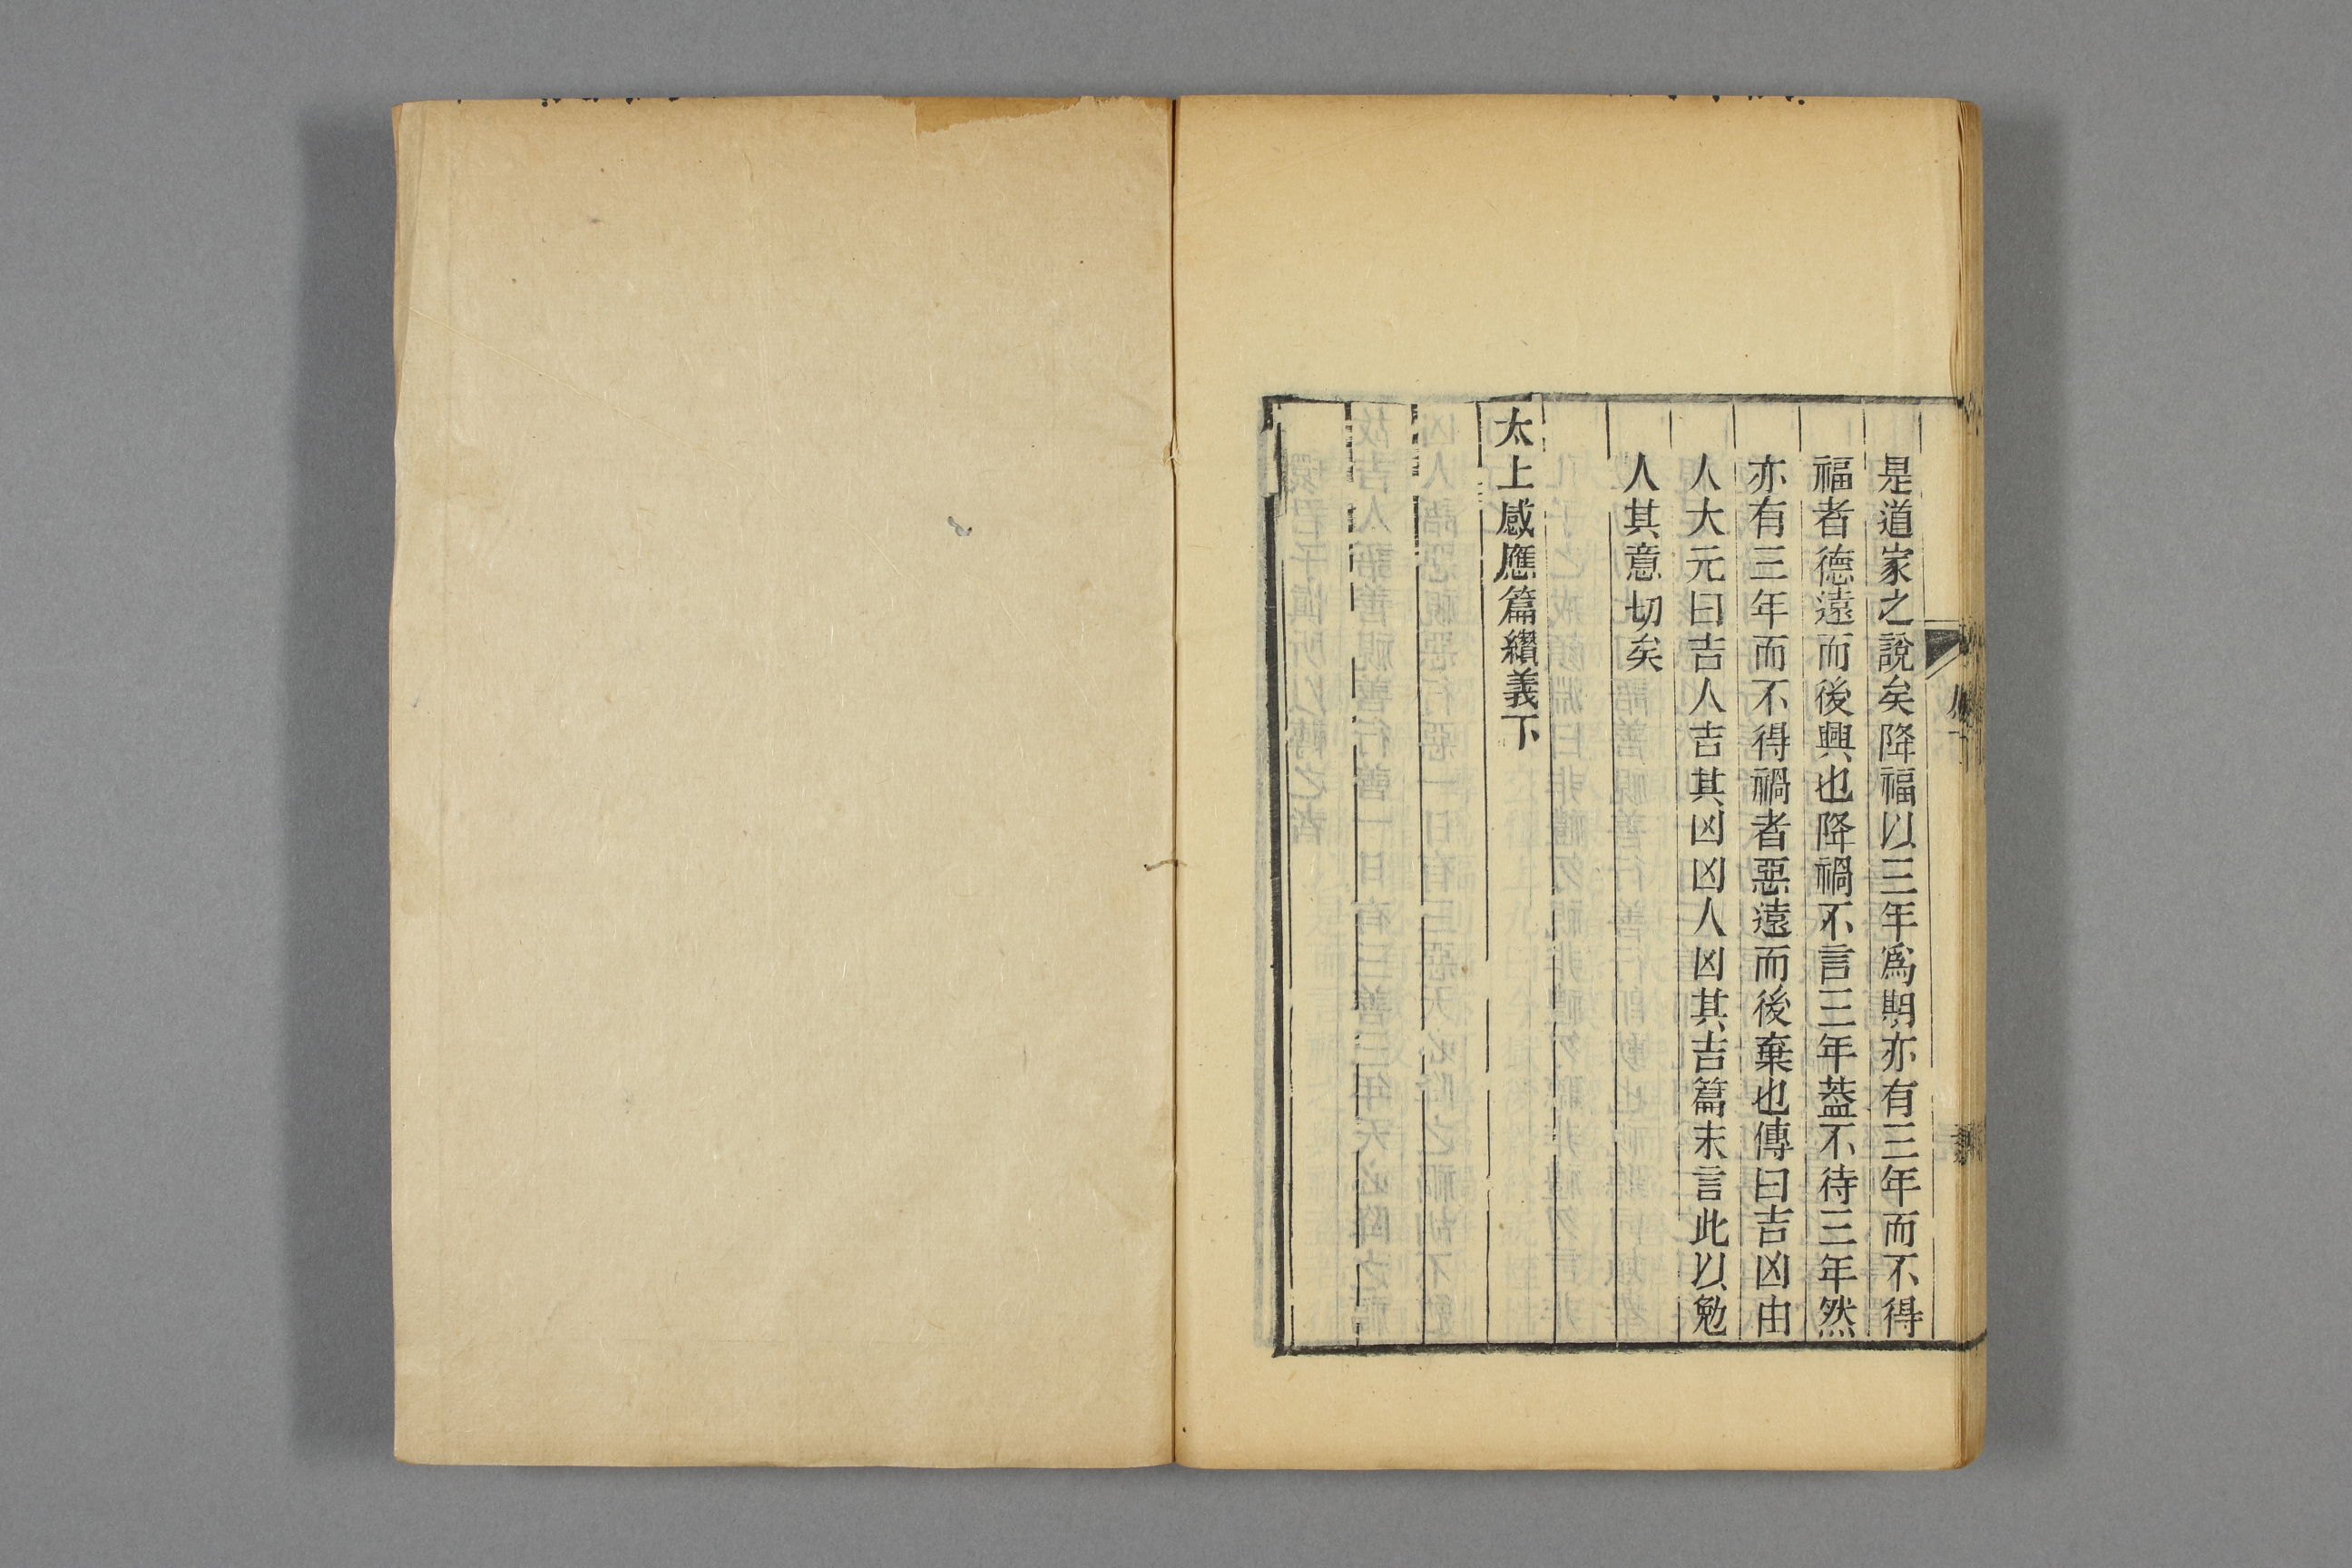 是道家之說矣降福以三年爲期亦有三年而不得
福者德遠而後興也降禍不言三年葢不待三年然
亦有三年而不得禍者惡遠而後棄也傳曰吉凶由
人大元曰吉人吉其凶凶人凶其吉篇末言此以勉
人其意切矣
太上感應篇纘義下